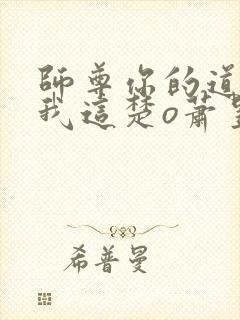 師尊你的道
我這楚o蕭
希普曼